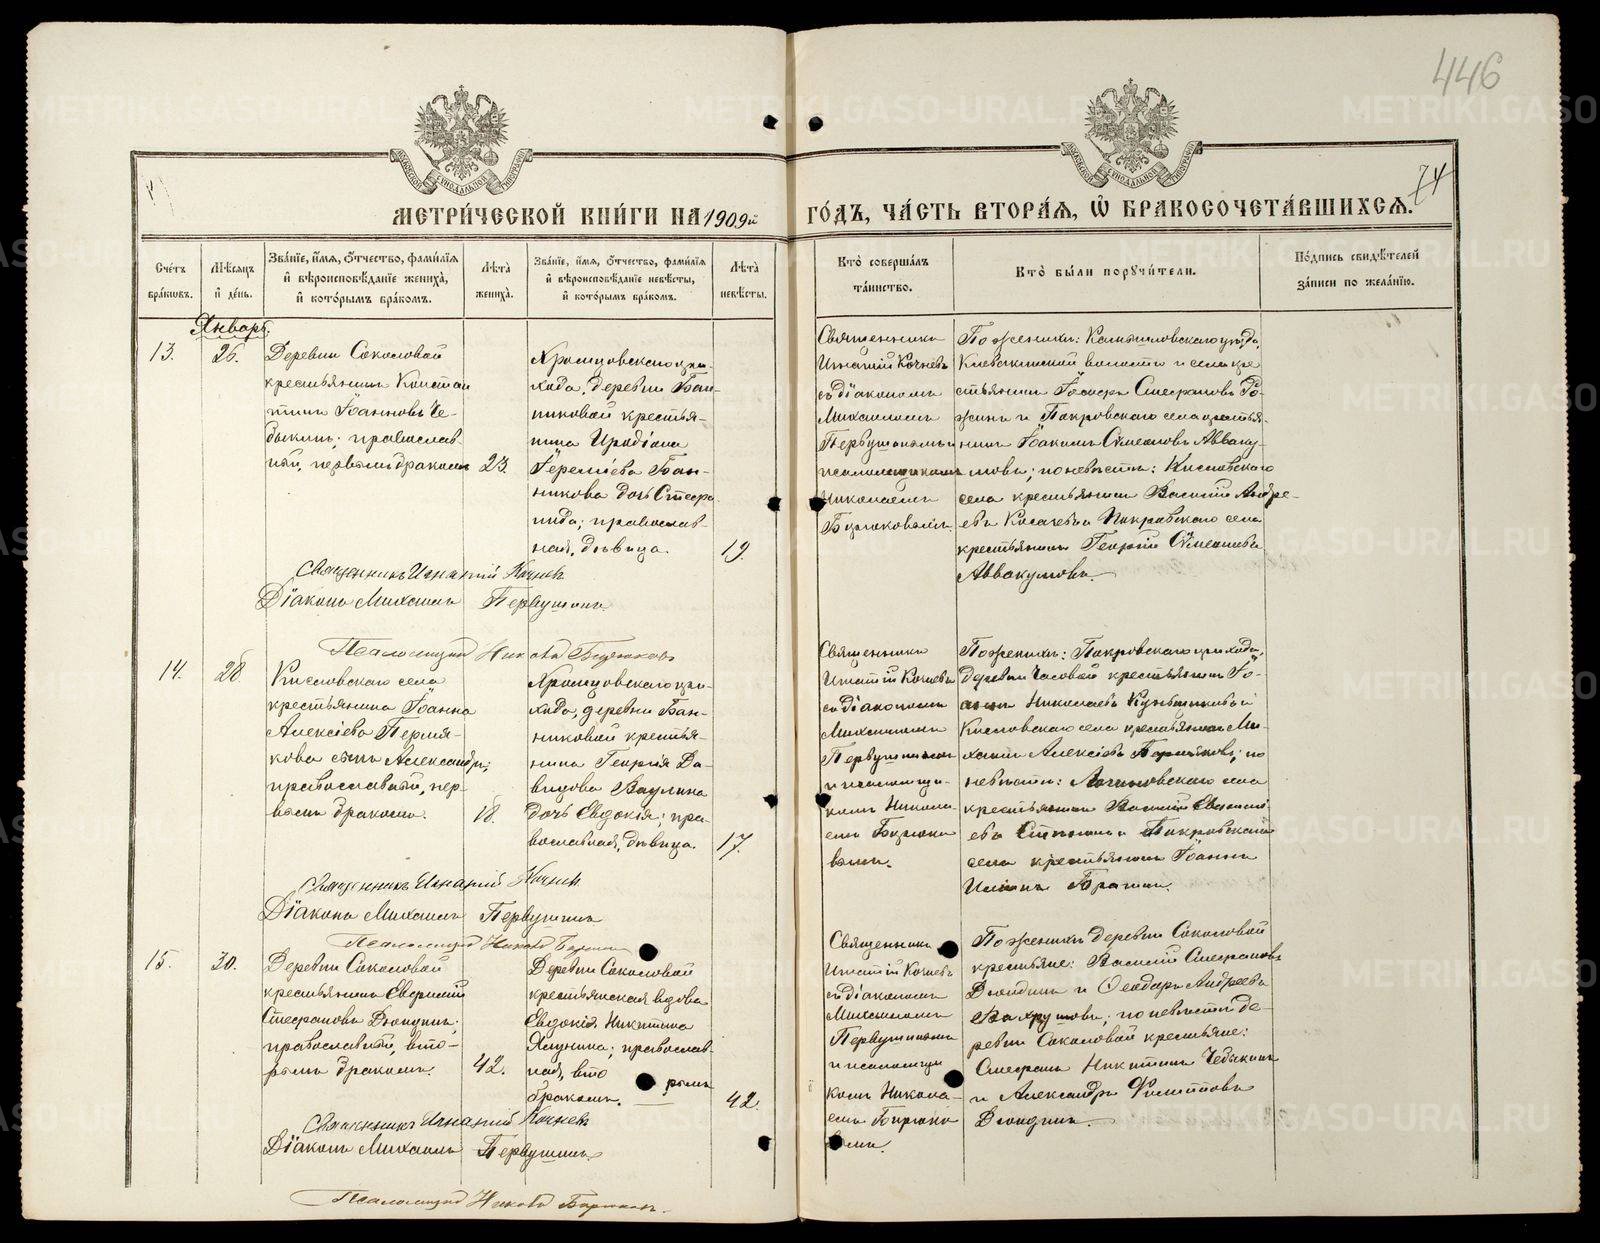 446
74
МЕТРИ́ЧЕСКОЙ КНИ́ГИ НА 1909й ГО́ДЪ, ЧА́СТЬ ВТОРА́Я, Ѡ БРАКОСОЧЕТА́ВШИХСЯ.
МОСКОВСКОЙ СѴНОДАЛЬНОЙ ТИПОГРАФІИ
МОСКОВСКОЙ СѴНОДАЛЬНОЙ ТИПОГРАФІИ
Сче́тъ бра́ковъ.
Мѣ́сяцъ и҆ де́нь.
Зва́нїе, и҆́мя, ѻ҆́тчество, фами́лїя
и҆ вѣроисповѣ́данїе жениха̀,
и҆ кото́рымъ бра́комъ.
Лѣ́та жениха̀.
Зва́нїе, и҆́мя, ѻ҆́тчество, фами́лїя
и҆ вѣроисповѣ́данїе невѣ́сты,
и҆ кото́рымъ бра́комъ.
Лѣ́та невѣ́сты.
Кто̀ соверша́лъ
та́инство.
Кто̀ бы́ли порꙋчи́тели.
По́дпись свидѣ́телей
за́писи по жела́нїю.
Январь.
13.
26.
Деревни Соколовой
крестьянинъ Констан
тинъ Іоанновъ Че-
быкинъ; православ-
ный, первымъ бракомъ
23.
Храмцовскаго при-
хода, деревни Бан-
никовой крестья-
нина Иродіона
Іереміева Бан-
никова дочь Стефа-
нида; православ-
ная, дѣвица.
19
Священникъ
Игнатій Кочневъ
съ діакономъ
Михаиломъ
Первушинымъ и
псаломщикомъ
Николаемъ
Бирюковымъ.
По женихѣ: Камышловскаго уѣзда,
волости и села кре-
стьянинъ Іосифъ Стефановъ Ро-
жинъ и Покровскаго села крестья-
нинъ Іоакимъ Симеоновъ Авваку-
мовъ; по невѣстѣ: Кисловскаго
села крестьянинъ Василій Андре-
евъ Косачевъ и Покровскаго села
крестьянинъ Георгій Симеоновъ
Аввакумовъ.
Священникъ Игнатій Кочневъ
Діаконъ Михаилъ Первушинъ
Псаломщикъ Николай Бирюковъ
14.
28.
Кисловскаго села
крестьянина Іоанна
Алексіева Пермя-
кова сынъ Александръ;
православный, пер-
вымъ бракомъ.
18.
Храмцовскаго при-
хода, деревни Бан-
никовой крестья-
нина Георгія Да-
видова Ваулина
дочь Евдокія; пра-
вославная, дѣвица.
17.
Священникъ
Игнатій Кочневъ
съ діакономъ
Михаиломъ
Первушинымъ
и псаломщи-
комъ Никола-
емъ Бирюко
вымъ.
По женихѣ: Покровскаго прихода,
деревни Часовой крестьянинъ Іо-
аннъ Николаевъ
Кисловскаго села крестьянинъ Ми-
хаилъ Алексіевъ Пермяковъ; по
невѣстѣ: села
крестьянинъ Василій
евъ и Покровскаго
села крестьянинъ Іоаннъ
Священникъ Игнатій Кочневъ
Діаконъ Михаилъ Первушинъ
Псаломщикъ Николай
15.
30.
Деревни Соколовой
крестьянинъ Евфимій
Стефановъ Дюндинъ;
православный, вто-
рымъ бракомъ.
42.
Деревни Соколовой
крестьянская вдова
Евдокія Никитина
православ-
ная, вто рымъ
бракомъ.
42.
Священникъ
Игнатій Кочневъ
съ діакономъ
Михаиломъ
Первушинымъ
и псаломщи
комъ Никола-
емъ Бирюко
вымъ.
По женихѣ деревни Соколовой
крестьяне: Василій Стефановъ
Дюндинъ и Ѳеодоръ Андреевъ
Вахрушевъ; по невѣстѣ де-
ревни Соколовой крестьяне:
Стефанъ Никитинъ Чебыкинъ
и Александръ Филипповъ
Дюндинъ.
Священникъ Игнатій Кочневъ
Діаконъ Михаилъ Первушинъ
Псаломщикъ Николай Бирюковъ.
METRIKI.GASO-URAL.RU